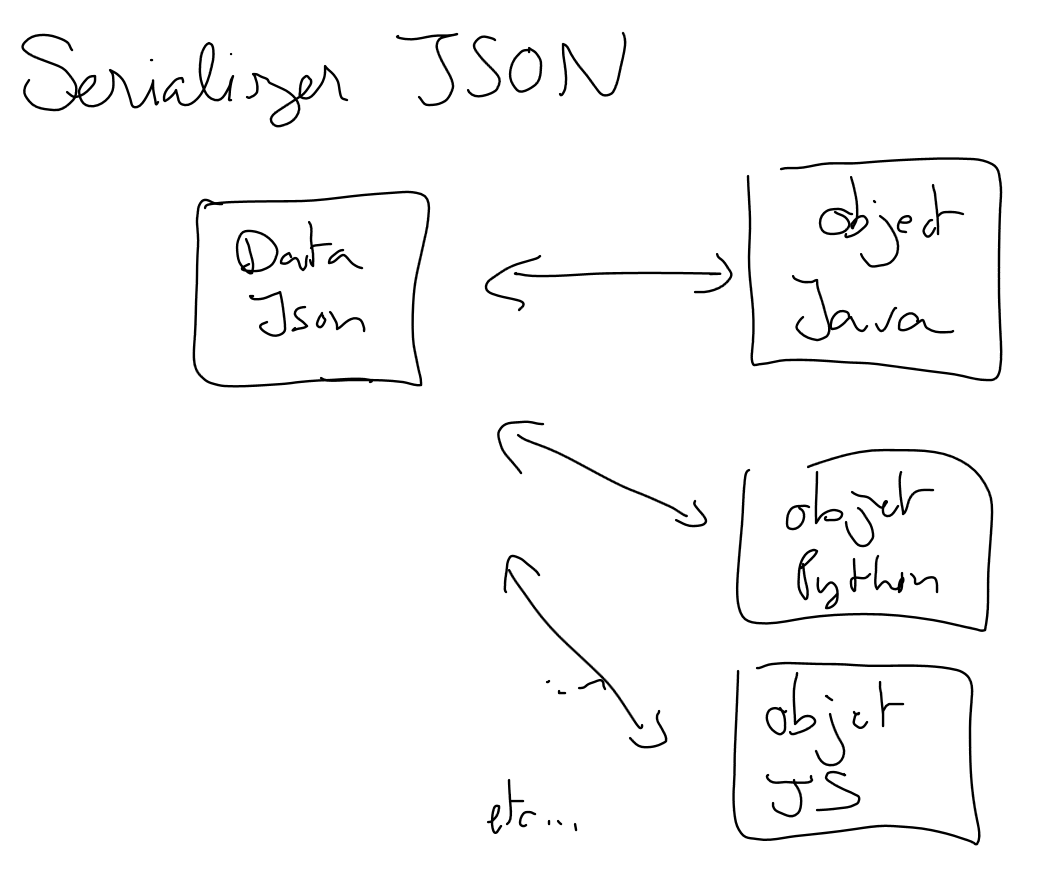 Serializer JSON
Data
Json
object
Java
objet
Python
objet
JS
etc...